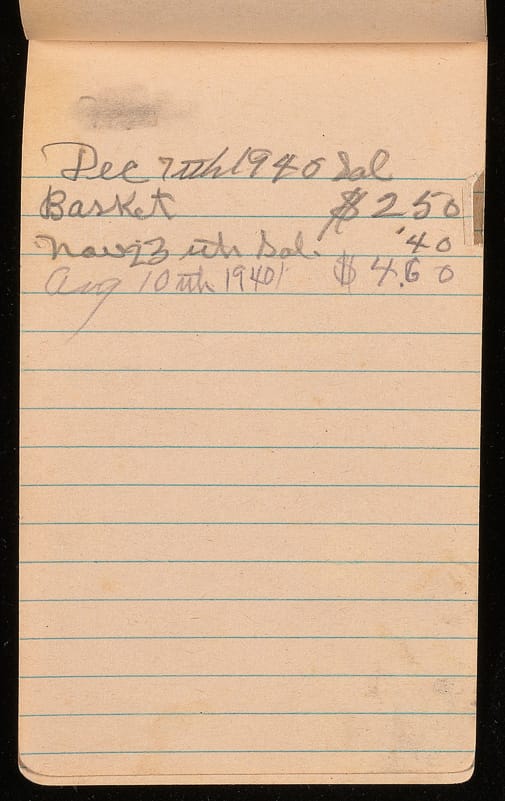 Dec 7th 1940 Sal
Basket $2.50
Nov 23 th Sal. .40
Aug 10 th 1940 $4.60